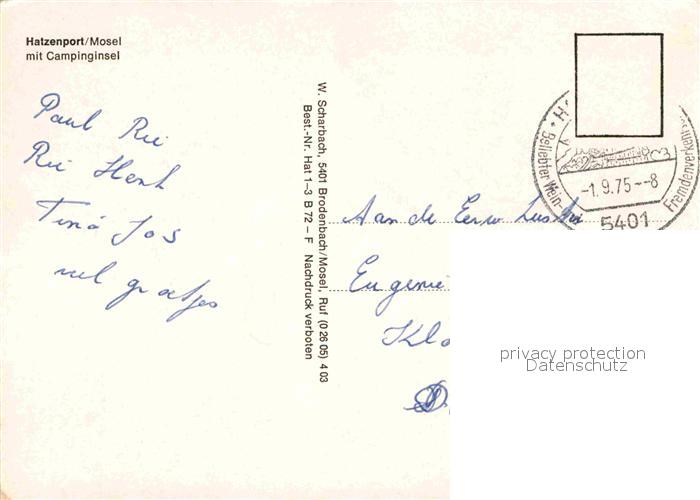 Hatzenport/Mosel
mit Campinginsel
Paul Rii
Rii Henk
Tino Jos
vel groetjes
W. Scharbach, 5401 Brodenbach/Mosel, Ruf (0 26 05) 4 03
Best.-Nr. Hat 1–3 B 72 – F Nachdruck verboten
Beliebter Wein-
Fremdenverkehr
-1.9.75--8
5401
Aan de Eerw
Eugenie
Klo
privacy protection
Datenschutz